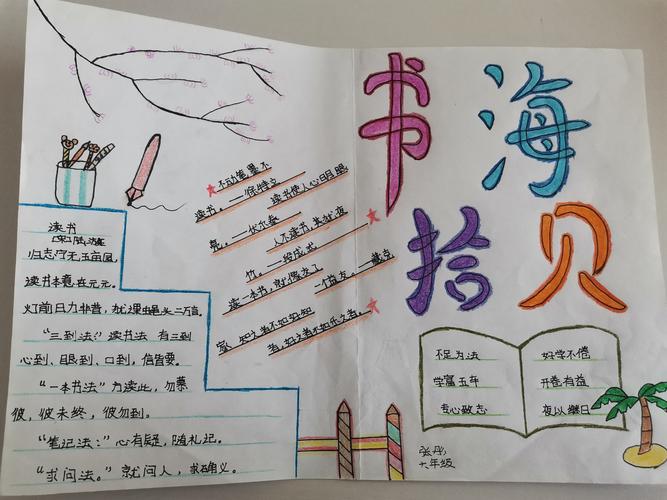 书海
拾贝
读书
[宋]陆游
归志宁无五亩园,
读书本意在元元。
灯前目力非昔,犹课蝇头二万言。
“三到法:”读书法 有三到
心到、眼到、口到,信皆要。
“一本书法”方读此,勿慕
彼,彼未终,彼勿到。
“笔记法:”心有疑,随札记。
“求问法。”就问人,求确义。
不动笔墨不
读书。——徐特立
读书使人心明眼
亮。——伏尔泰
人不读书,其犹夜
读一本书,就像交了
一个益友。——藏克
家
知之者不如好知
者,好之者不如乐之者。
不足为法 好学不倦
学富五车 开卷有益
专心致志 夜以继日
张彤
六年级